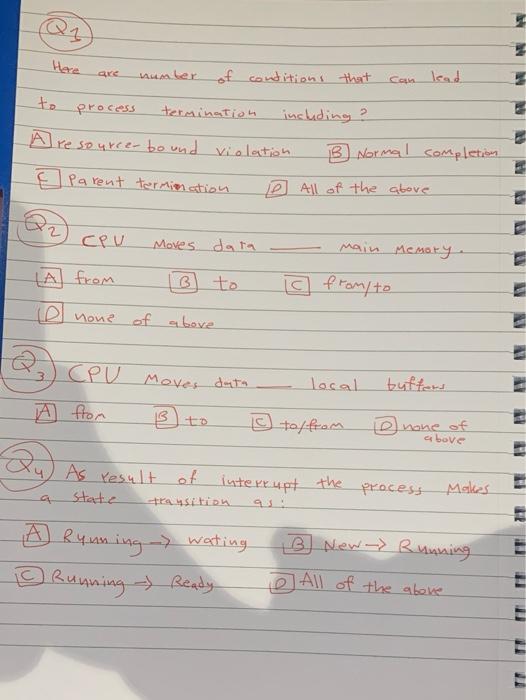 Q1
Here are number of conditions that can lead
to process termination including?
A resource-bound violation B Normal completion
C Parent termination D All of the above
Q2 CPU Moves data ___ main Memory.
A from B to C from/to
D none of above
Q3 CPU Moves data ___ local buffers
A from B to C to/from D none of
above
Q4 As result of interrupt the process Makes
a state transition as:
A Running → wating B New → Running
C Running → Ready D All of the above